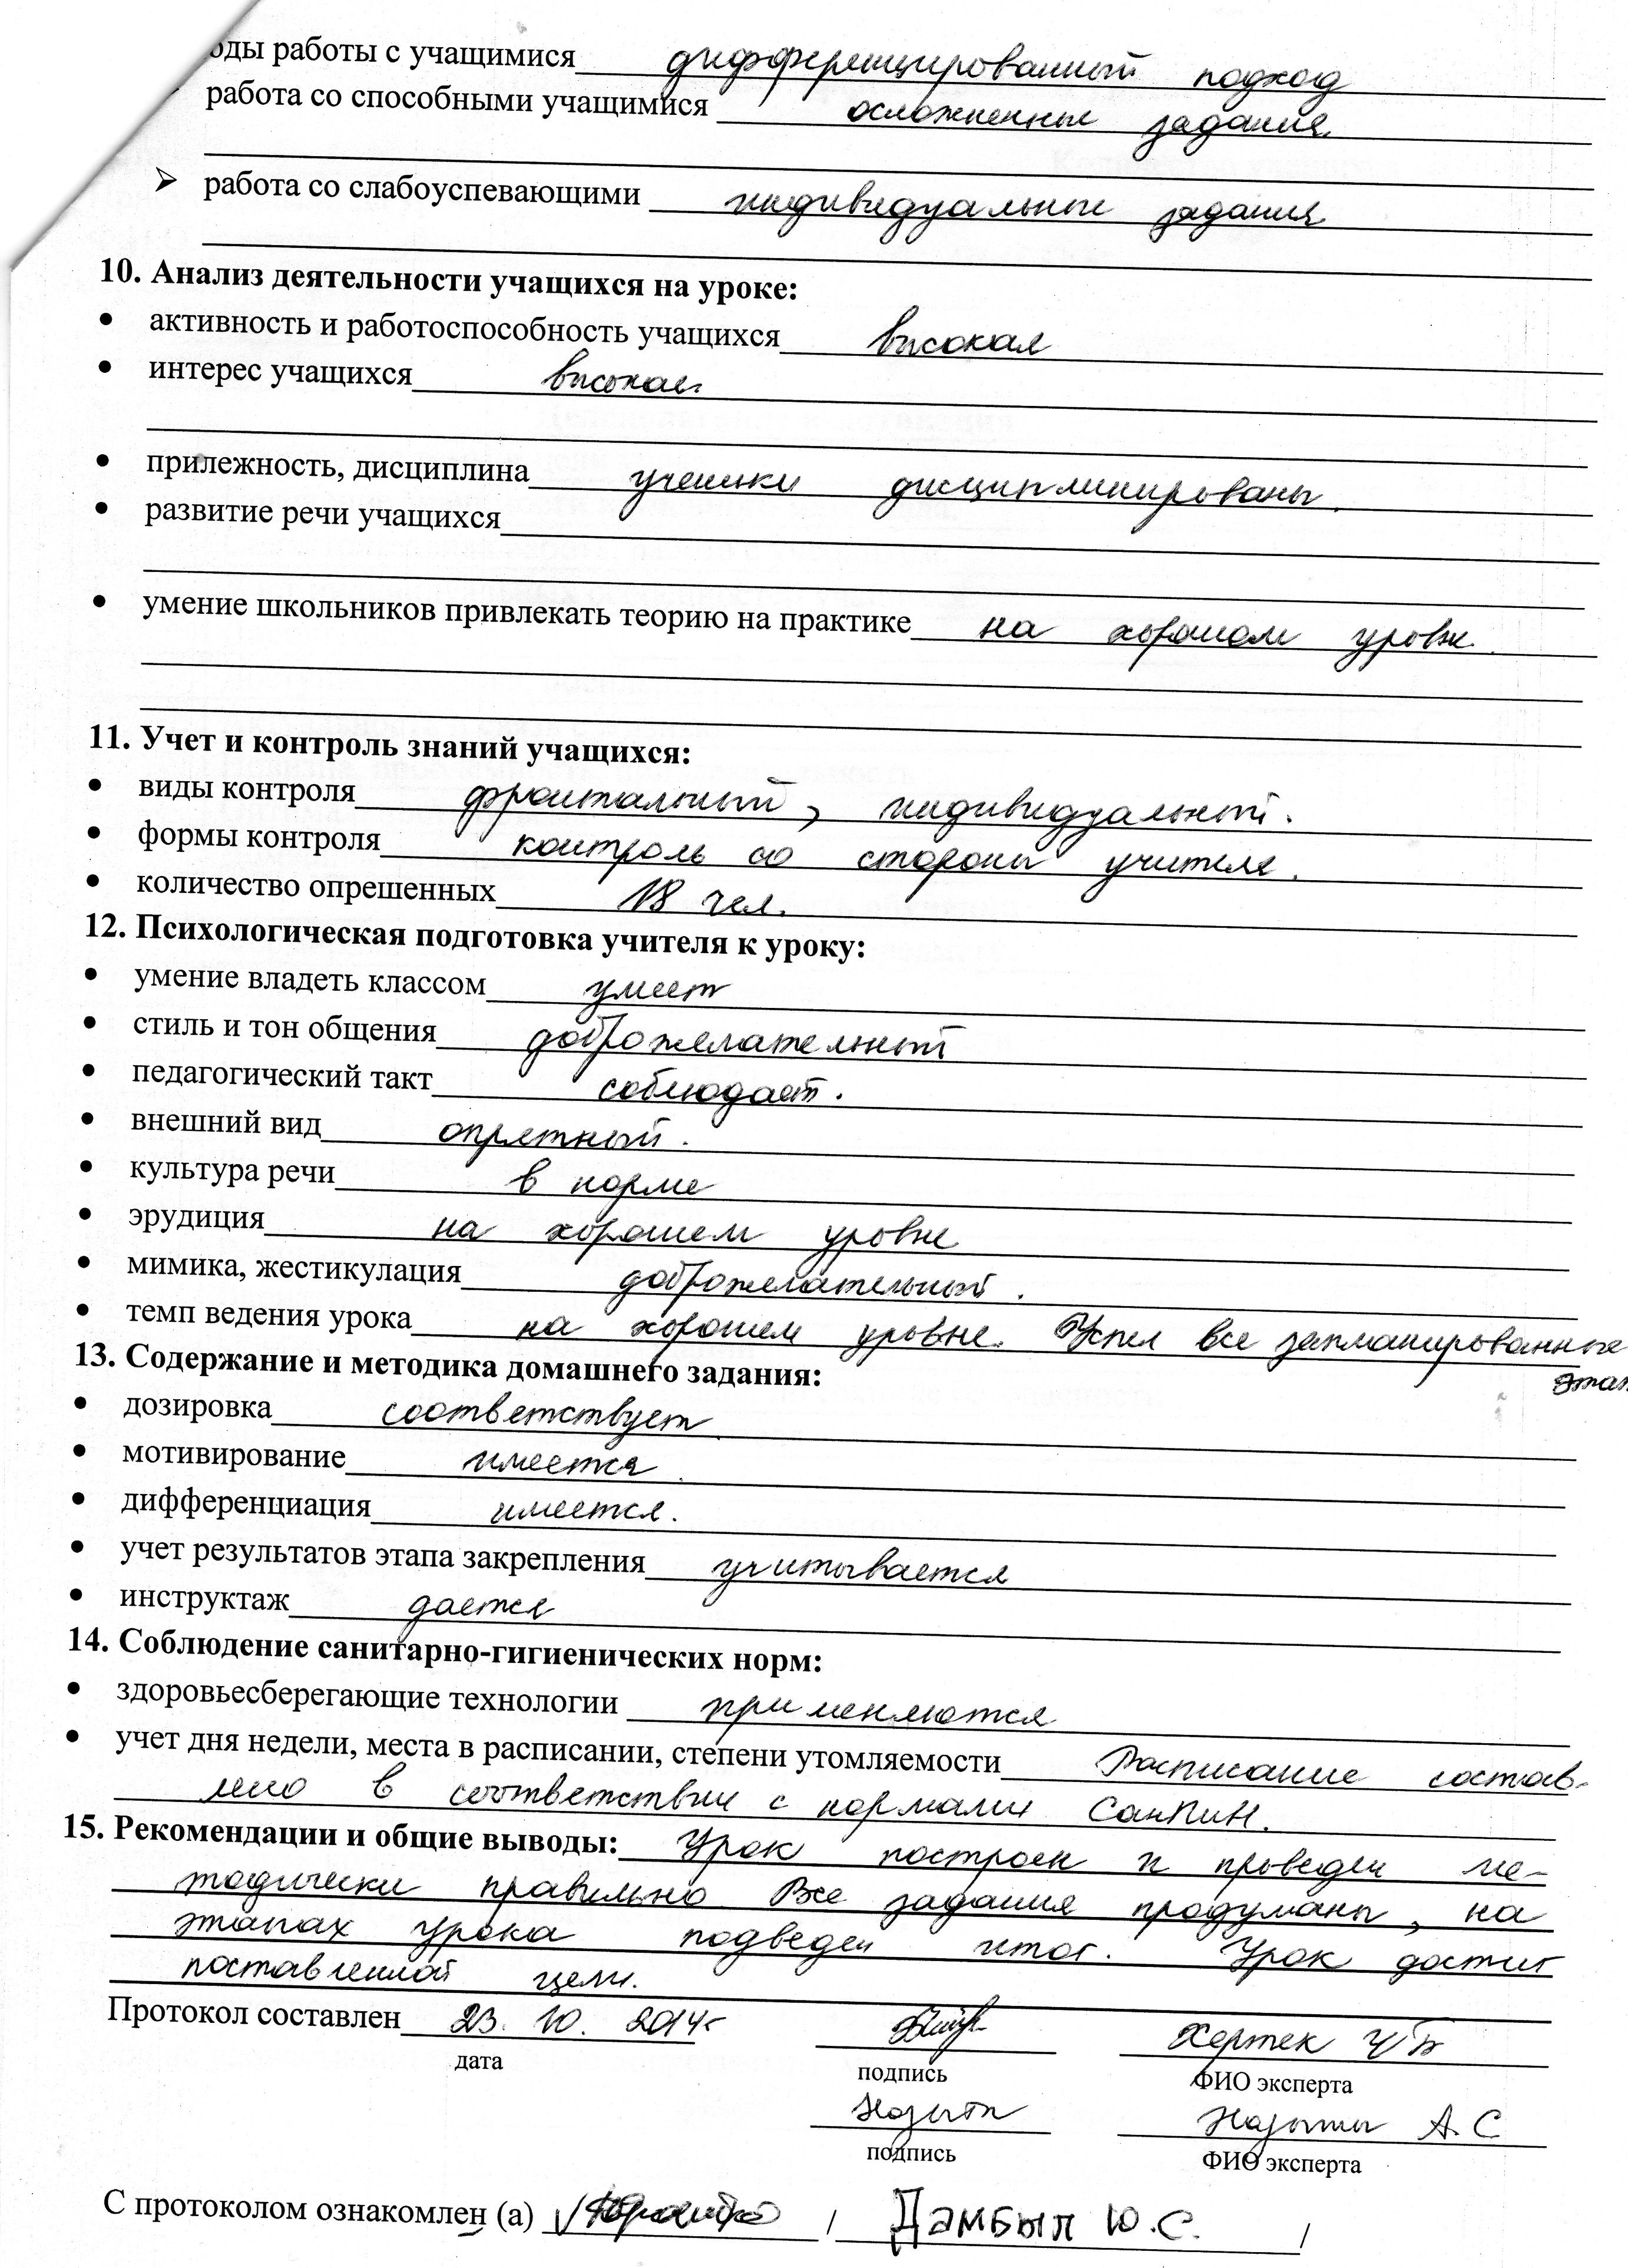 оды работы с учащимися дифференцированный подход
работа со способными учащимися осложненные задания
➢ работа со слабоуспевающими индивидуальные задания
10. Анализ деятельности учащихся на уроке:
• активность и работоспособность учащихся высокая
• интерес учащихся высокая
• прилежность, дисциплина ученики дисциплинированы.
• развитие речи учащихся
• умение школьников привлекать теорию на практике на хорошем уровне.
11. Учет и контроль знаний учащихся:
• виды контроля фронтальный, индивидуальный.
• формы контроля контроль со стороны учителя.
• количество опрешенных 18 чел.
12. Психологическая подготовка учителя к уроку:
• умение владеть классом умеет
• стиль и тон общения доброжелательный
• педагогический такт соблюдает.
• внешний вид опрятный.
• культура речи в норме
• эрудиция на хорошем уровне
• мимика, жестикуляция доброжелательный.
• темп ведения урока на хорошем уровне. Успел все запланированные
этап
13. Содержание и методика домашнего задания:
• дозировка соответствует
• мотивирование имеется.
• дифференциация имеется.
• учет результатов этапа закрепления учитывается
• инструктаж дается
14. Соблюдение санитарно-гигиенических норм:
• здоровьесберегающие технологии применяются
• учет дня недели, места в расписании, степени утомляемости Расписание состав-
лено в соответствии с нормами СанПиН.
15. Рекомендации и общие выводы: Урок построен и проведен ме-
тодически правильно. Все задания продуманы, на
этапах урока подведен итог. Урок достиг
поставленной цели.
Протокол составлен 23. 10. 2014г Хертек Ч Б
дата подпись ФИО эксперта
А. С
подпись ФИО эксперта
С протоколом ознакомлен (а) / Дамбыл Ю.С. /